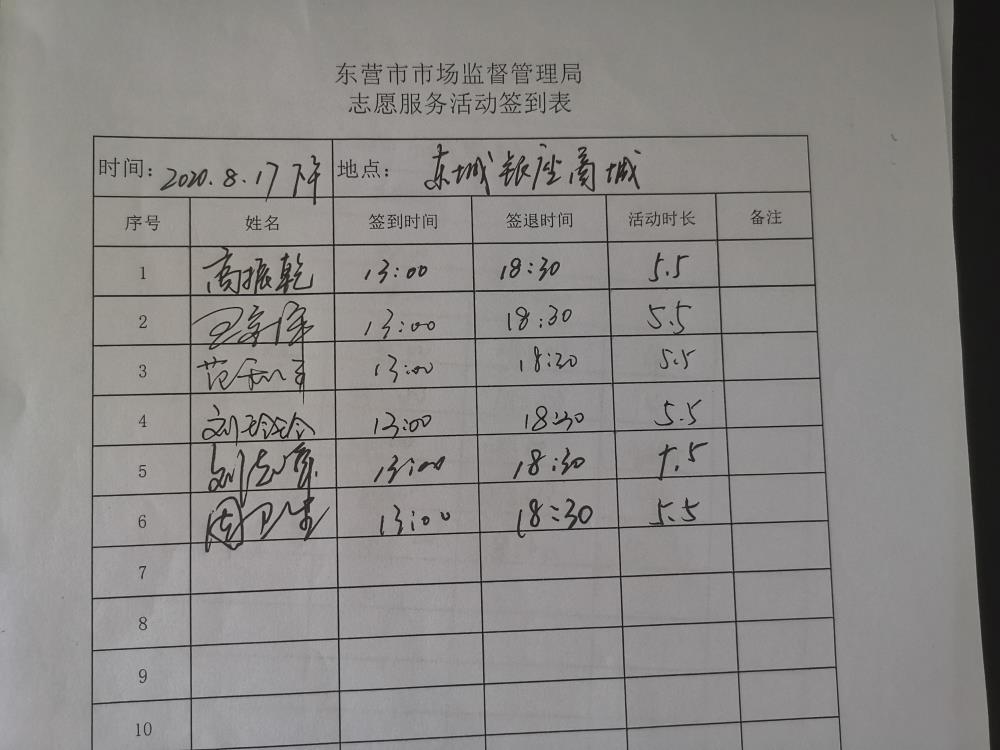 东营市市场监督管理局
志愿服务活动签到表
时间: 2020.8.17下午 地点: 东城银座商城
序号 姓名 签到时间 签退时间 活动时长 备注
1 高振乾 13:00 18:30 5.5
2 13:00 18:30 5.5
3 13:00 18:30 5.5
4 刘玲玲 13:00 18:30 5.5
5 13:00 18:30 5.5
6 周卫生 13:00 18:30 5.5
7
8
9
10